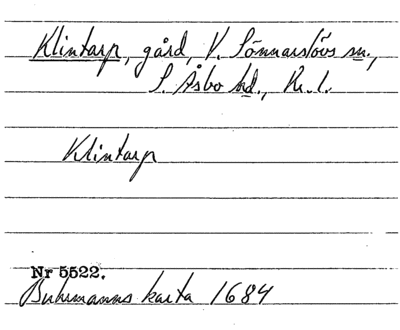 Klintarp, gård, V. Sönnarslövs sn.,
S. Åsbo hd., Kr. l.
Klintarp
Nr 5522.
Buhrmanns karta 1684